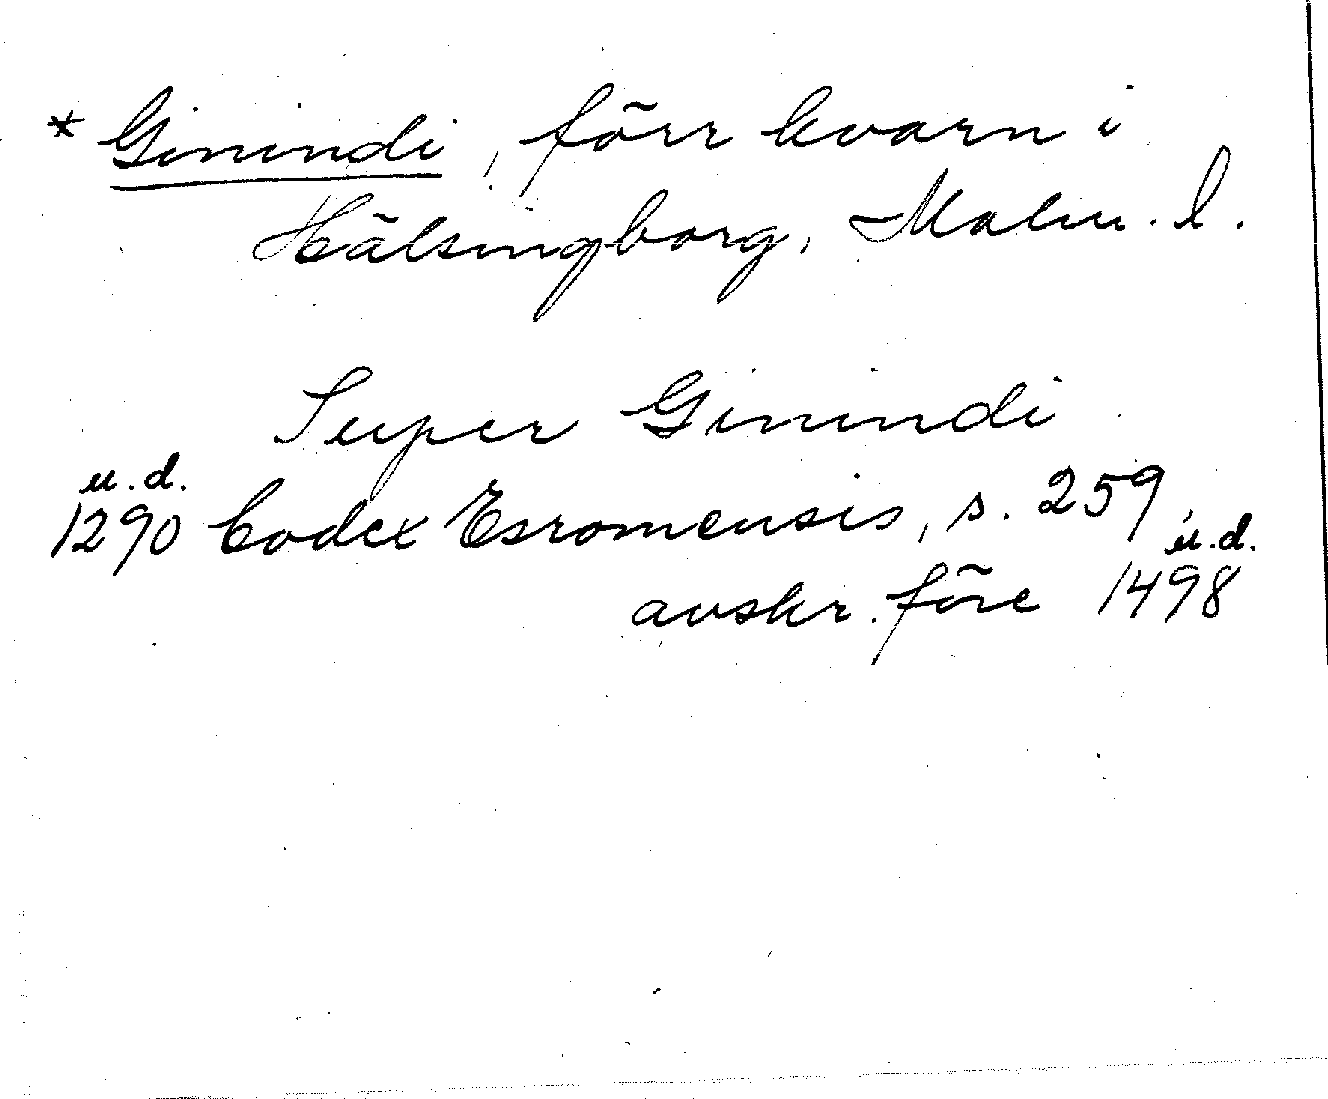 * Ginindi, förr kvarn i
Hälsingborg, Malm. l.
Super Ginindi
u.d.
1290 Codex Esromensis, s. 259,
u.d.
avskr. före 1498